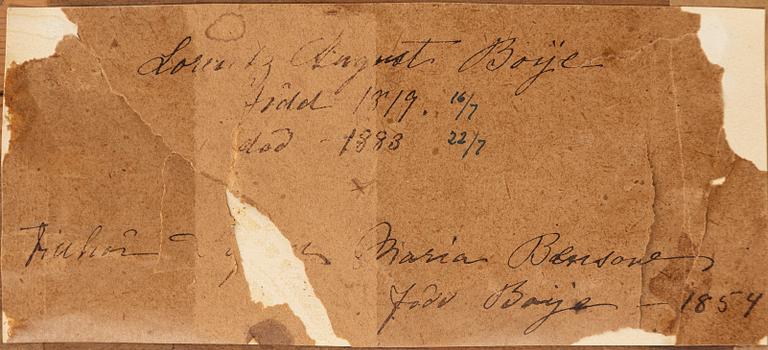 Lorentz August Boije
född 1819. 16/7
död - 1883 22/7
Maria Bensow
född Boije - 1854